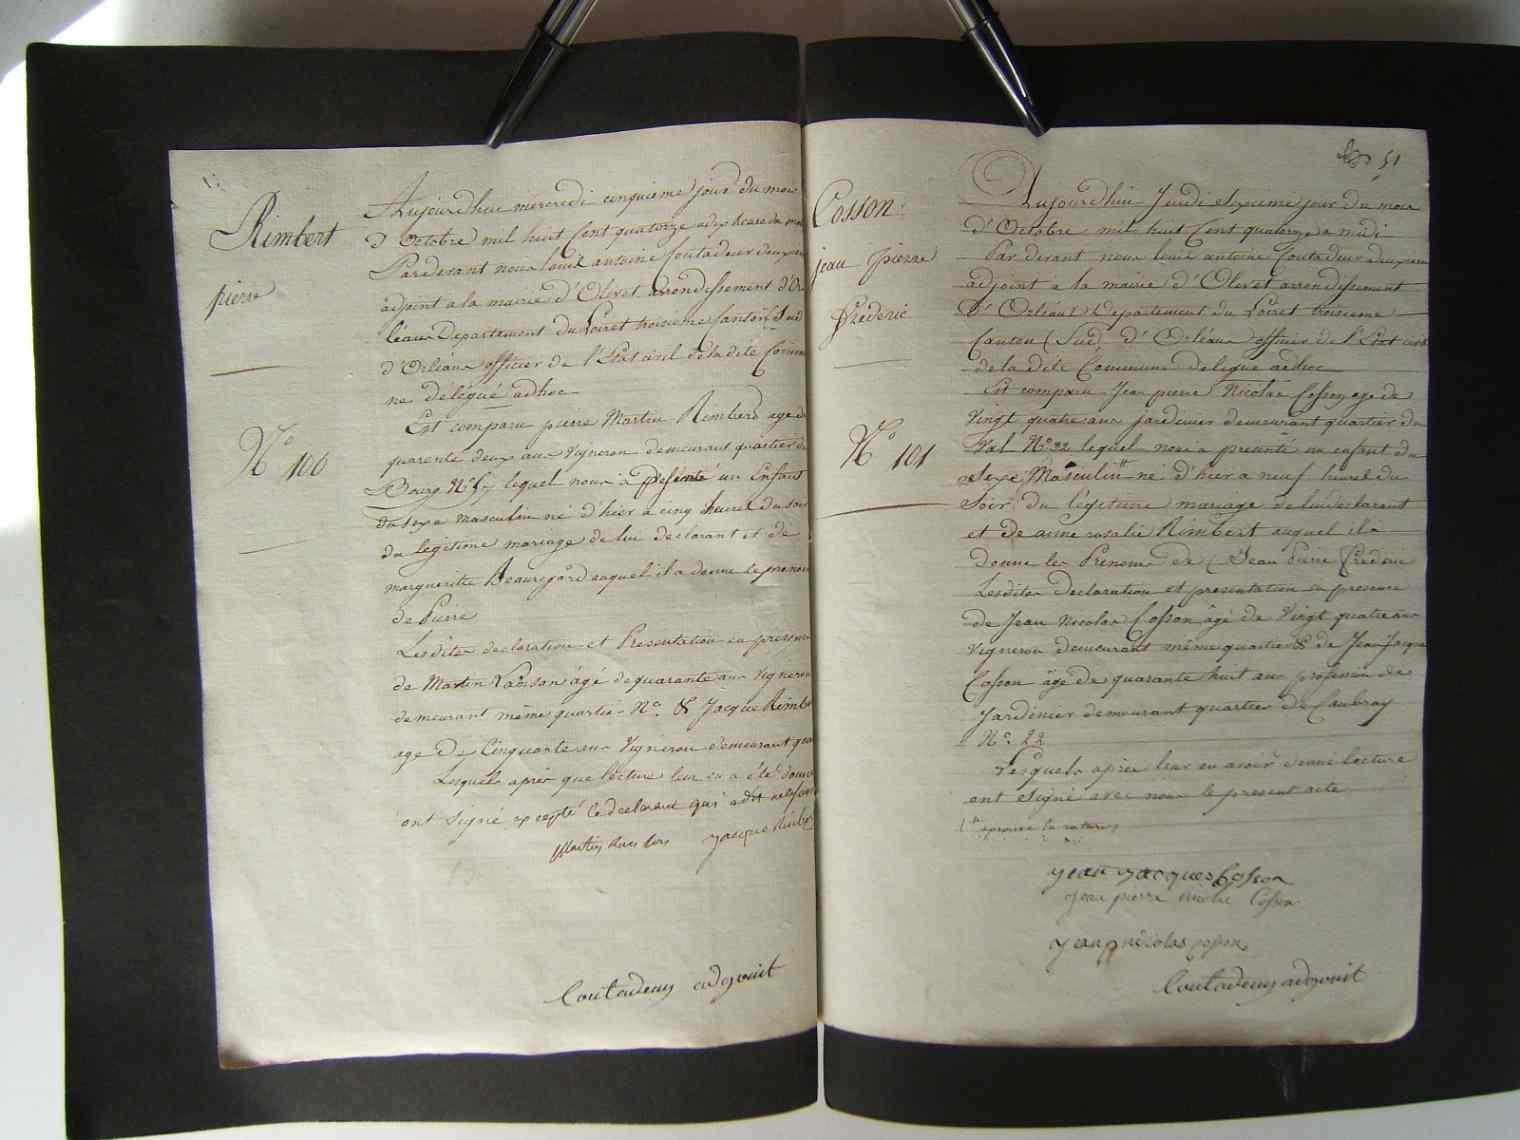 Rimbert
pierre
N° 100
Aujourdhui mercredi cinquieme jour du mois
d'Octobre mil huit Cent quatorze a dix heures du mat
Pardevant nous louis antoine Coutadeur deuxieme
adjoint a la mairie d'Olivet arrondissement d'Or
léans Departement du Loiret troisieme Canton Sud
d'Orléans officier de l'Etat civil de la dite Commu
ne délégué adhoc
Est comparu pierre Martin Rimbert age de
quarente deux ans Vigneron demeurant quartier du
Bourg N° lequel nous a présenté un Enfant
du sexe masculin né d'hier a cinq heures du soir
du legitime mariage de lui declarant et de
margueritte Beauregard auquel il a donné le prenom
de Pierre
Lesdites declaration et Presentation en presence
de Martin âgé de quarante ans Vigneron
demeurant même quartier N° & Jacque Rimb
age de Cinquante ans Vigneron demeurant qua
Lesquels après que lecture leur en a été donné
ont signé excepté le declarant qui a dit ne savoir
jacque Rimb
Coutadeur adjouit
51
Cosson
jean pierre
Frederic
N° 101
Aujourdhui Jeudi sixieme jour du mois
d'Octobre mil huit Cent quatorze a midi
Par devant nous louis antoine Coutadeur deuxieme
adjoint a la mairie d'Olivet arrondissement
d'Orléans Departement du Loiret troisieme
Canton (Sud) d'Orléans officier de l'Etat civil
de la dite Commune delégué adhoc
Est comparu Jean pierre Nicolas Cosson age de
Vingt quatre ans jardinier demeurant quartier du
Val N° 22 lequel nous a presenté un enfant du
Sexe Masculin né d'hier a neuf heures du
Soir du légitime mariage de lui declarant
et de anne rosalie Rimbert auquel il a
donné les Prenoms de Jean Pierre Frederic
Lesdites declaration et presentation en presence
de Jean Nicolas Cosson âgé de Vingt quatre ans
Vigneron demeurant même quartier & de Jean Jacque
Cosson âgé de quarante huit ans profession de
Jardinier demeurant quartier de Caubray
N° 22
Lesquels apres leur en avoir donné lecture
ont signé avec nous le present acte
jean jacques Cosson
jean pierre nicolas Cosson
jean nicolas cosson
Coutadeur adjouit